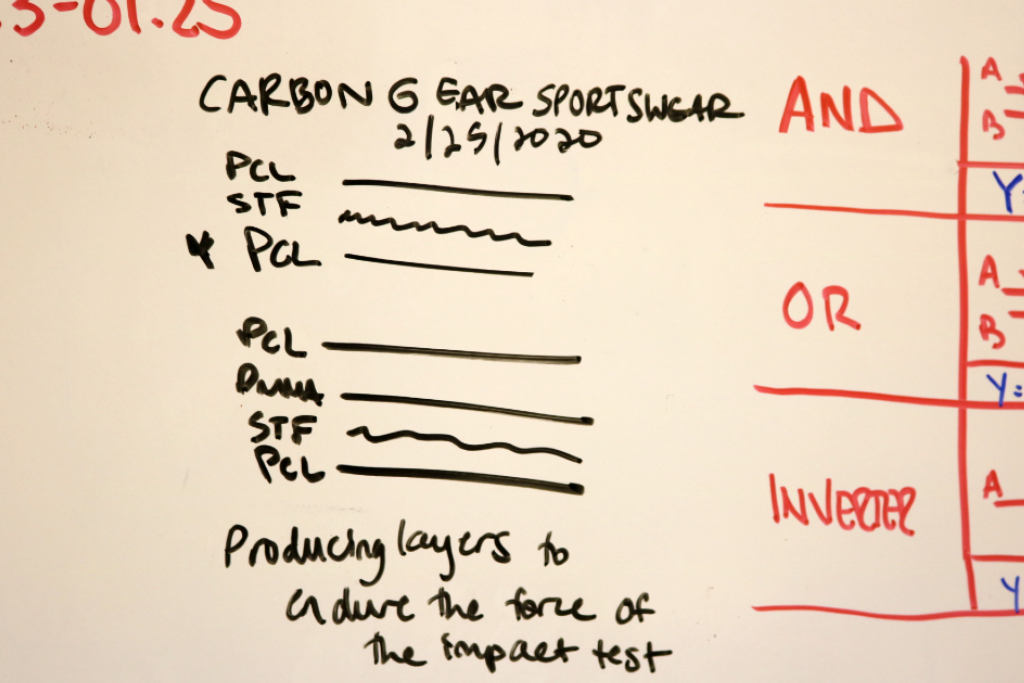 3-01.25
CARBON GEAR SPORTSWEAR
2/25/2020
PCL
STF
PCL
PCL
PMMA
STF
PCL
Producing layers to
endure the force of
the impact test
AND
A
B
Y=
OR
A
B
Y=
INVERTER
A
Y